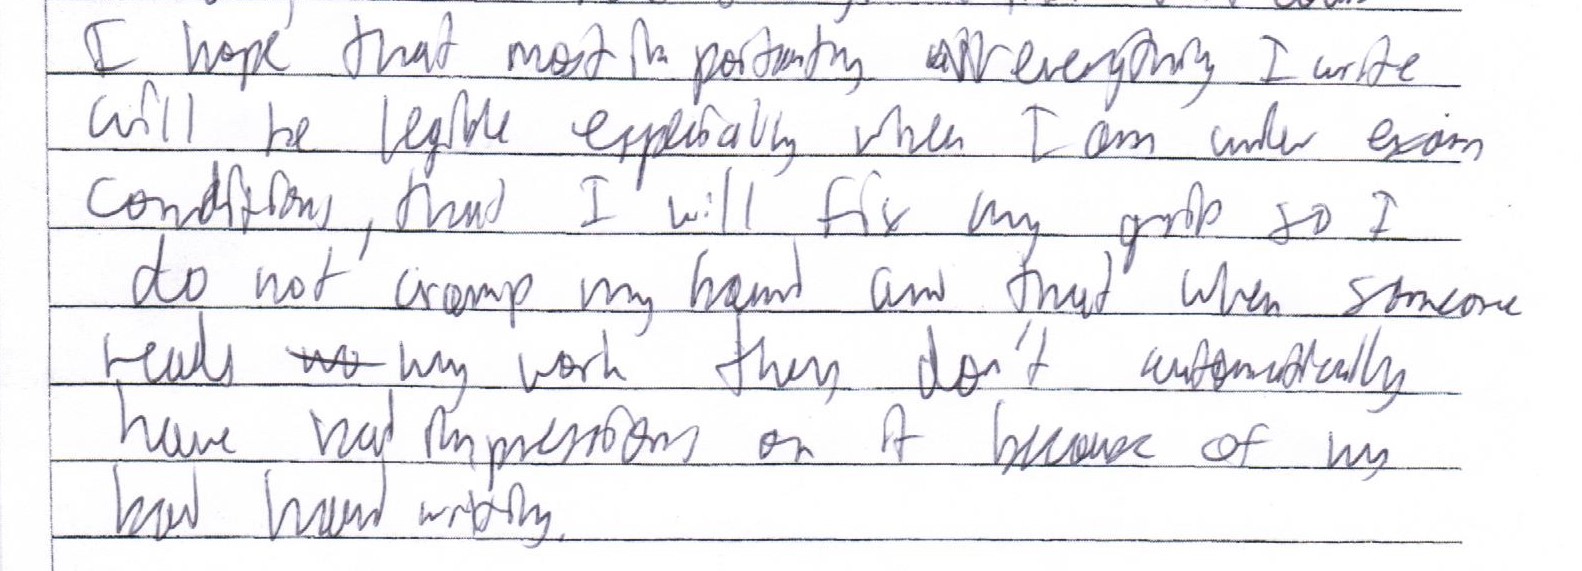 I hope that most importantly everything I write
will be legible especially when I am under exam
conditions, that I will fix my grip so I
do not cramp my hand and that when someone
reads my work they don't automatically
have bad impressions on it because of my
bad hand writing.